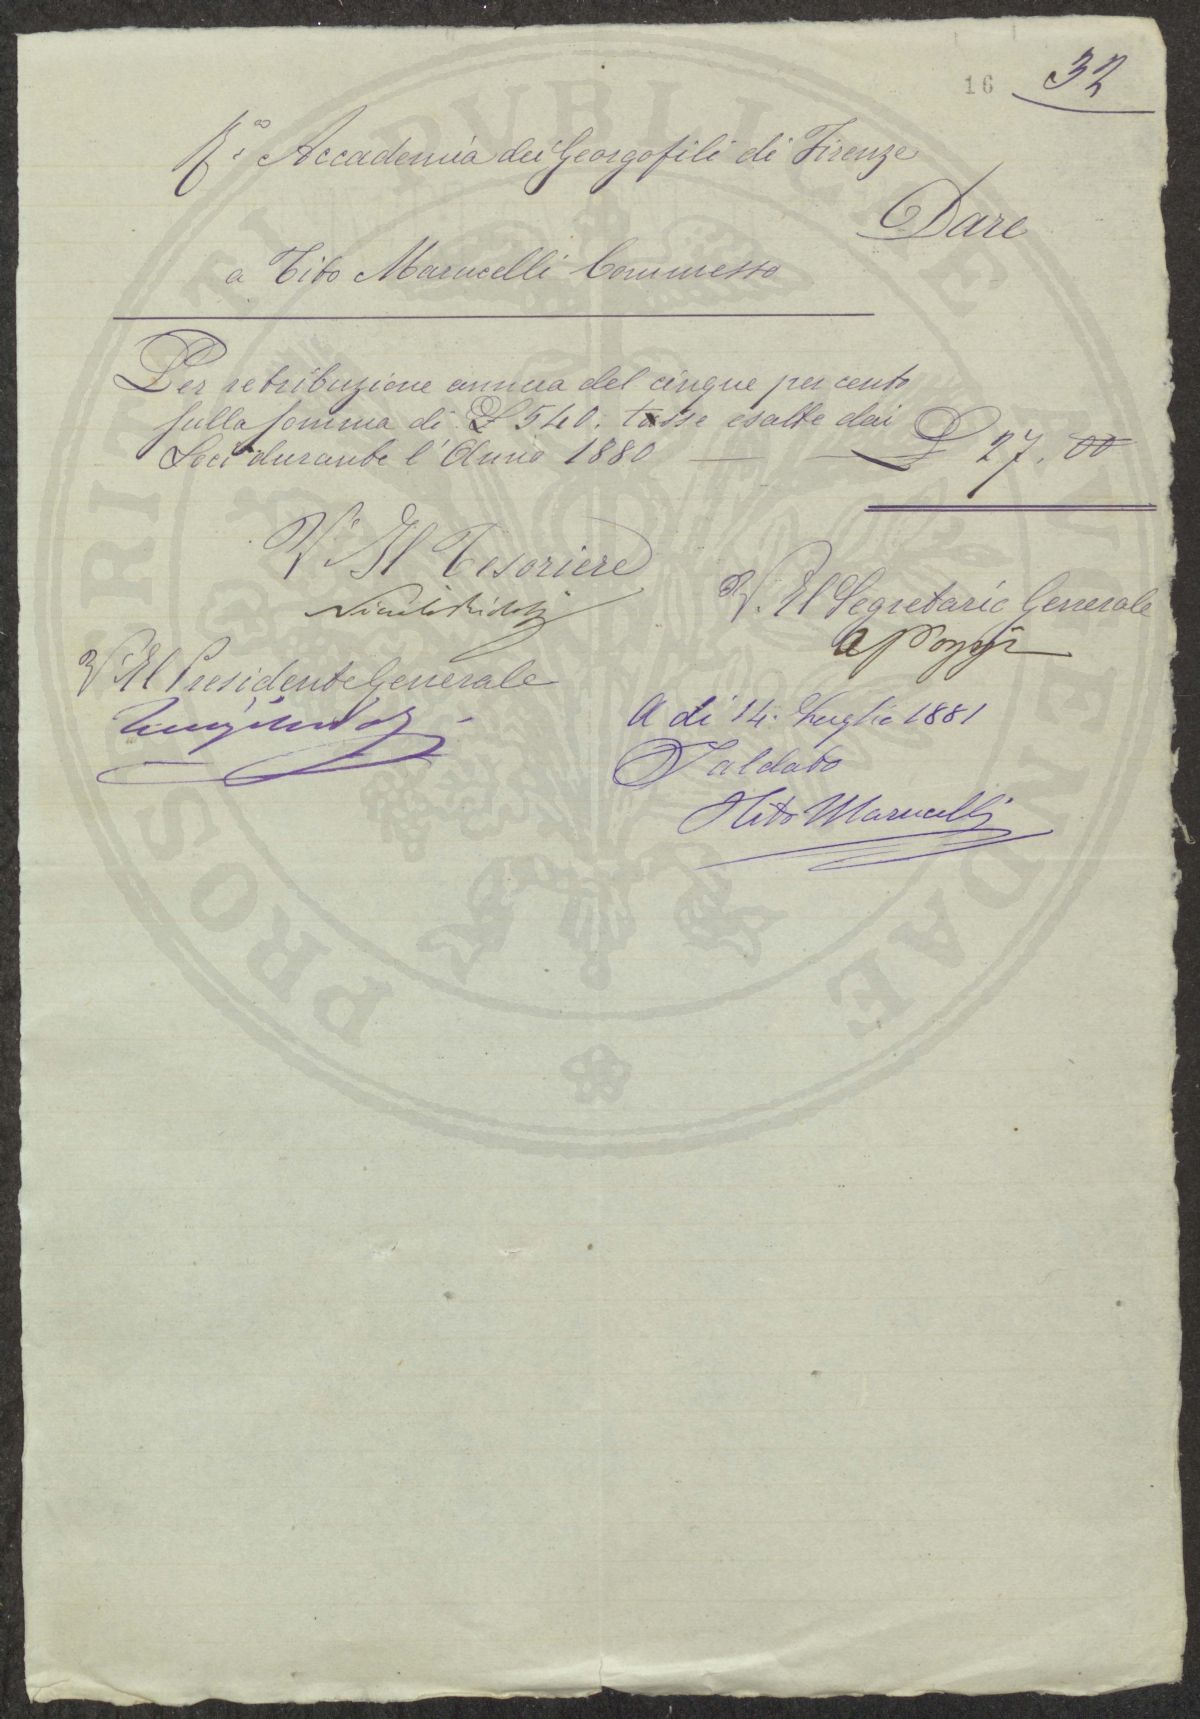 16 32
R.a Accademia dei Georgofili di Firenze
Dare
a Tito Marucelli Commesso
Per retribuzione annua del cinque per cento
sulla somma di £ 540. tasse esatte dai
Soci durante l'Anno 1880 — — £ 27.00
V. Il Tesoriere
Niccolò Ridolfi
V. Il Segretario Generale
V. Il Presidente Generale
A dì 14. Luglio 1881
Saldato
Tito Marucelli
PROSPERITATI PVBLICAE AVGENDAE